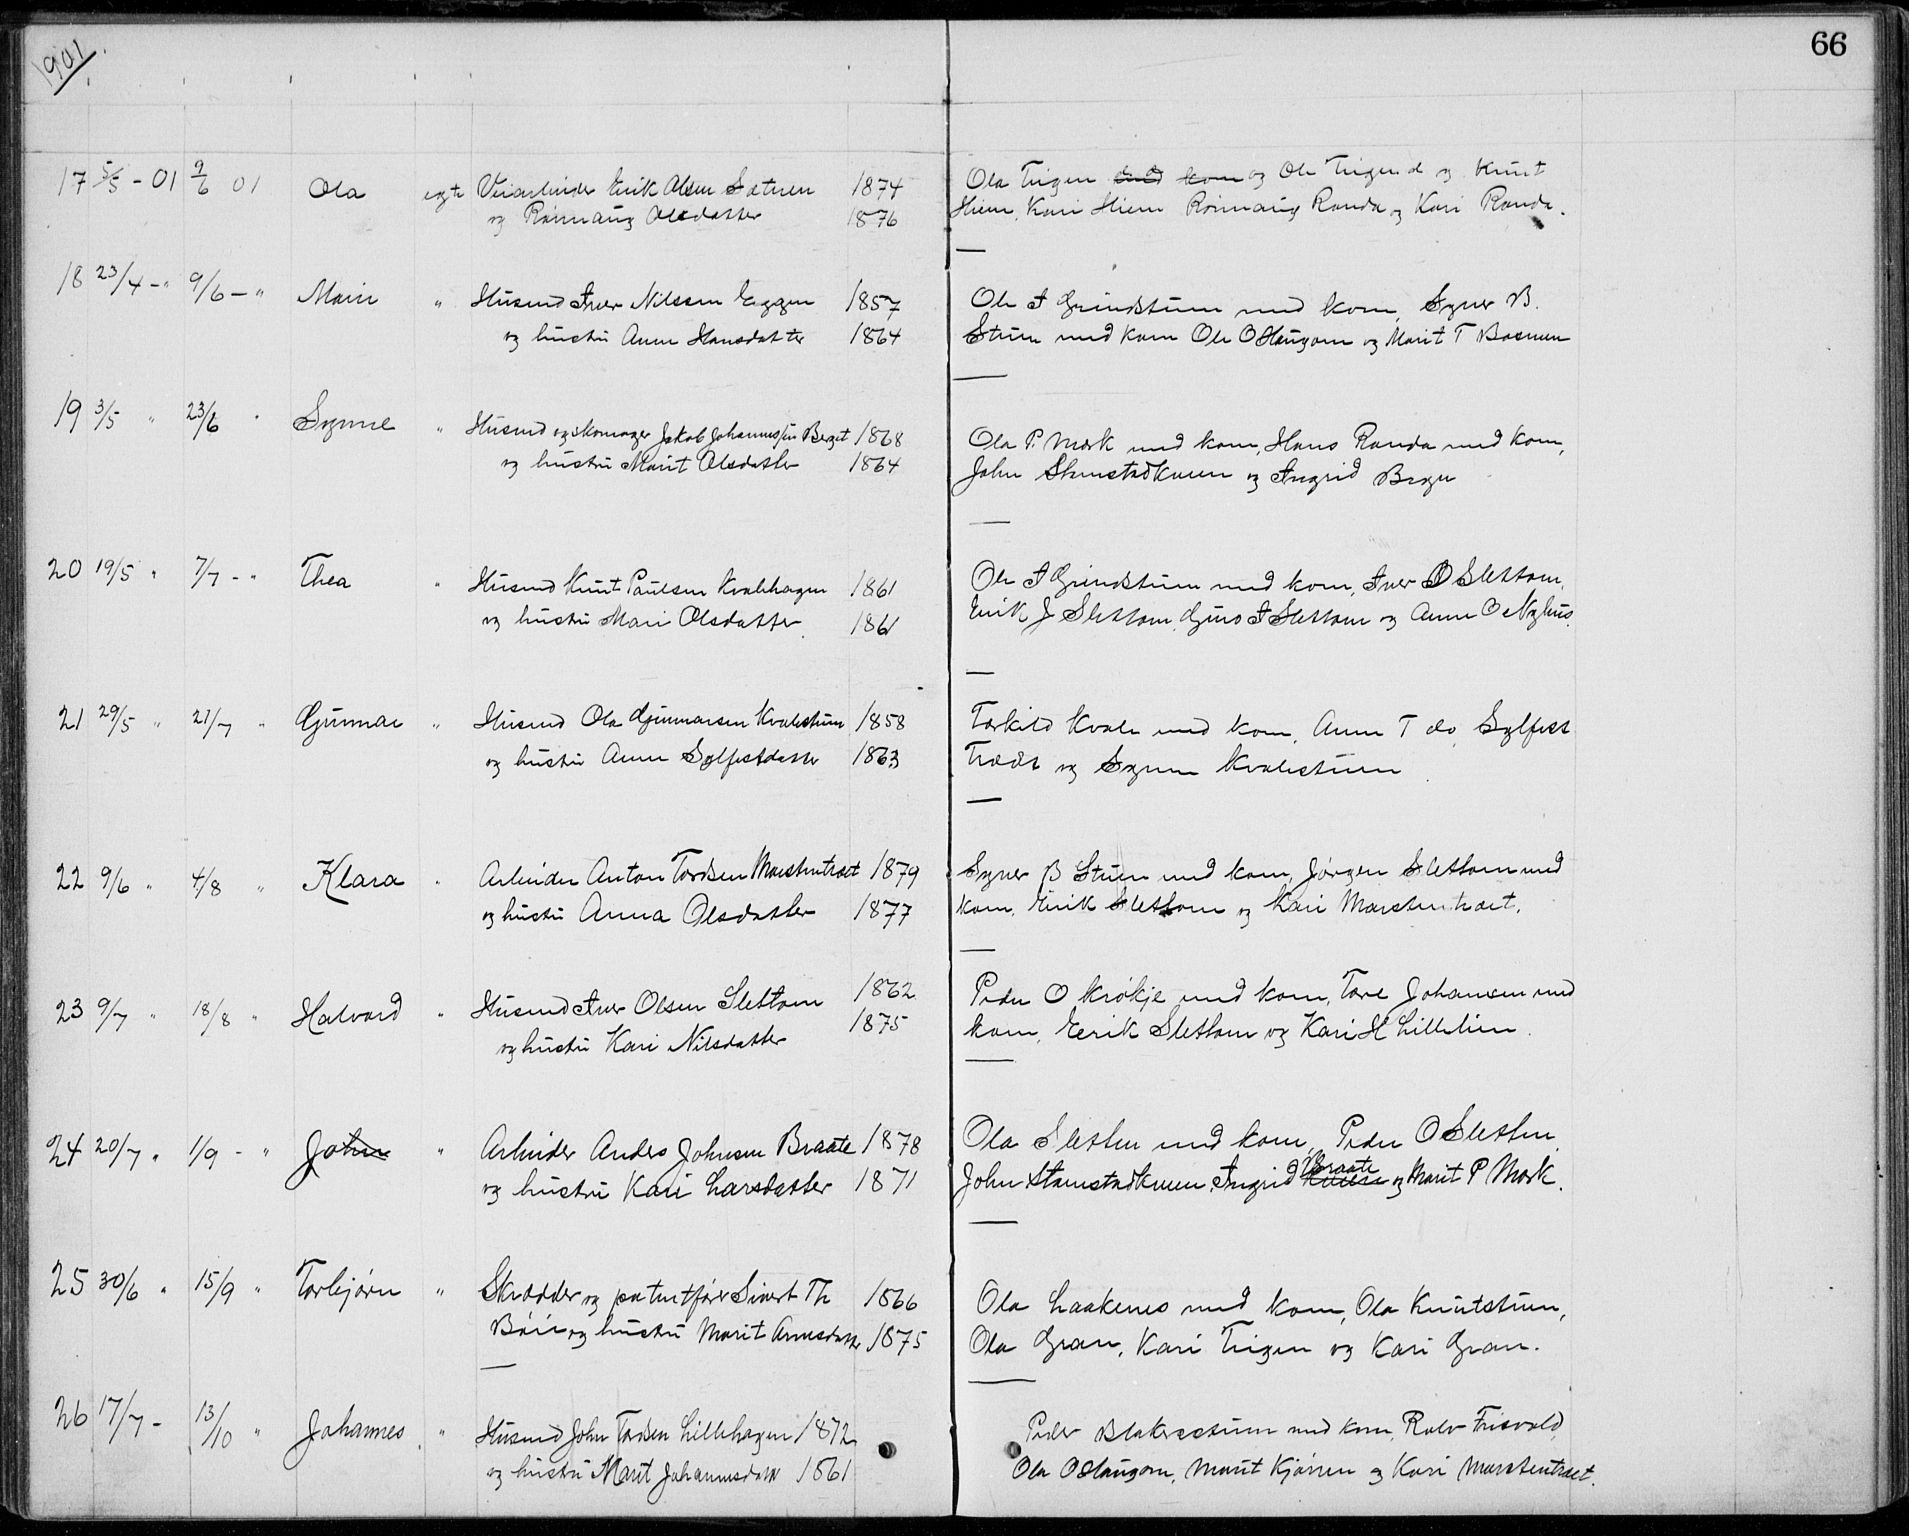 1901.
66
17 5/5 - 01 9/6 01 Ola egte Veiarbeider Erik Olsen Sætuen 1874
og Rønnaug Olsdatter 1876
Ola Trigen med kone og Ole Trigen d og Knut
Hiem, Kari Hiem Rønnaug Randa og Kari Randa.
18 23/4 - " 9/6 - " Marie " Husmd Iver Nilssen Eggen 1857
og hustru Anne Hansdatter 1864
Ole I Grindstuen med kone, Syver B.
Stuen med kone Ole O Haugom og Marit T Basmoen
19 3/5 " 23/6 " Synne " Husmd og skomager Jakob Johannessen Berget 1868
og hustru Marit Olsdatter 1864
Ola P. Mork med kone, Hans Randa med kone,
John Stamstadkveen og Ingrid
20 19/5 " 7/7 - " Thea " Husmd Knut Paulsen Kvalehagen 1861
og hustru Mari Olsdatter 1861
Ole I Grindstuen med kone, Iver O Slettom,
Erik J Slettom, Guro I Slettom og Anne O Nyhus.
21 29/5 " 21/7 " Gunnar " Husmd Ola Gunnarsen Kvalestuen 1858
og hustru Anne Sylfestdatter 1863
Torkild Kvale med kone, Anne T do, Sylfest
Trædet og Synne Kvalestuen
22 9/6 " 4/8 " Klara " Arbeider Anton Tordsen Marstentræet 1879
og hustru Anna Olsdatter 1877
Syver B Stuen med kone, Jørgen Slettom med
kone, Erik Slettom og Kari Marstentræet.
23 9/7 " 18/8 " Halvord " Husmd Iver Olsen Slettom 1862
og hustru Kari Nilsdatter 1875
Peder O Krøkje med kone, Tore Johansen med
kone, Eerik Slettom og Kari H Lillelien.
24 20/7 " 1/9 - " John " Arbeider Anders Johnsen Braate 1878
og hustru Kari Larsdatter 1871
Ola Sletten med kone, Peder O Sletten
John Stamstadkveen, Ingrid Kveen Braate og Marit P Mork.
25 30/6 " 15/9 " Torbjørn " Skrædder og patentfører Sivert Th 1866
Bøie og hustru Marit Arnesdatter 1875
Ola Laakenes med kone, Ola Knutstuen,
Ola Gran, Kari Trigen og Kari Gran.
26 17/7 - 13/10 " Johannes " Husmd John Tordsen Lillehagen 1872
og hustru Marit Johannesdatter 1861
Peder Blakerstuen med kone, Rolv Frisvold,
Ola O Haugom, Marit Kjørren og Kari Marstentræet.